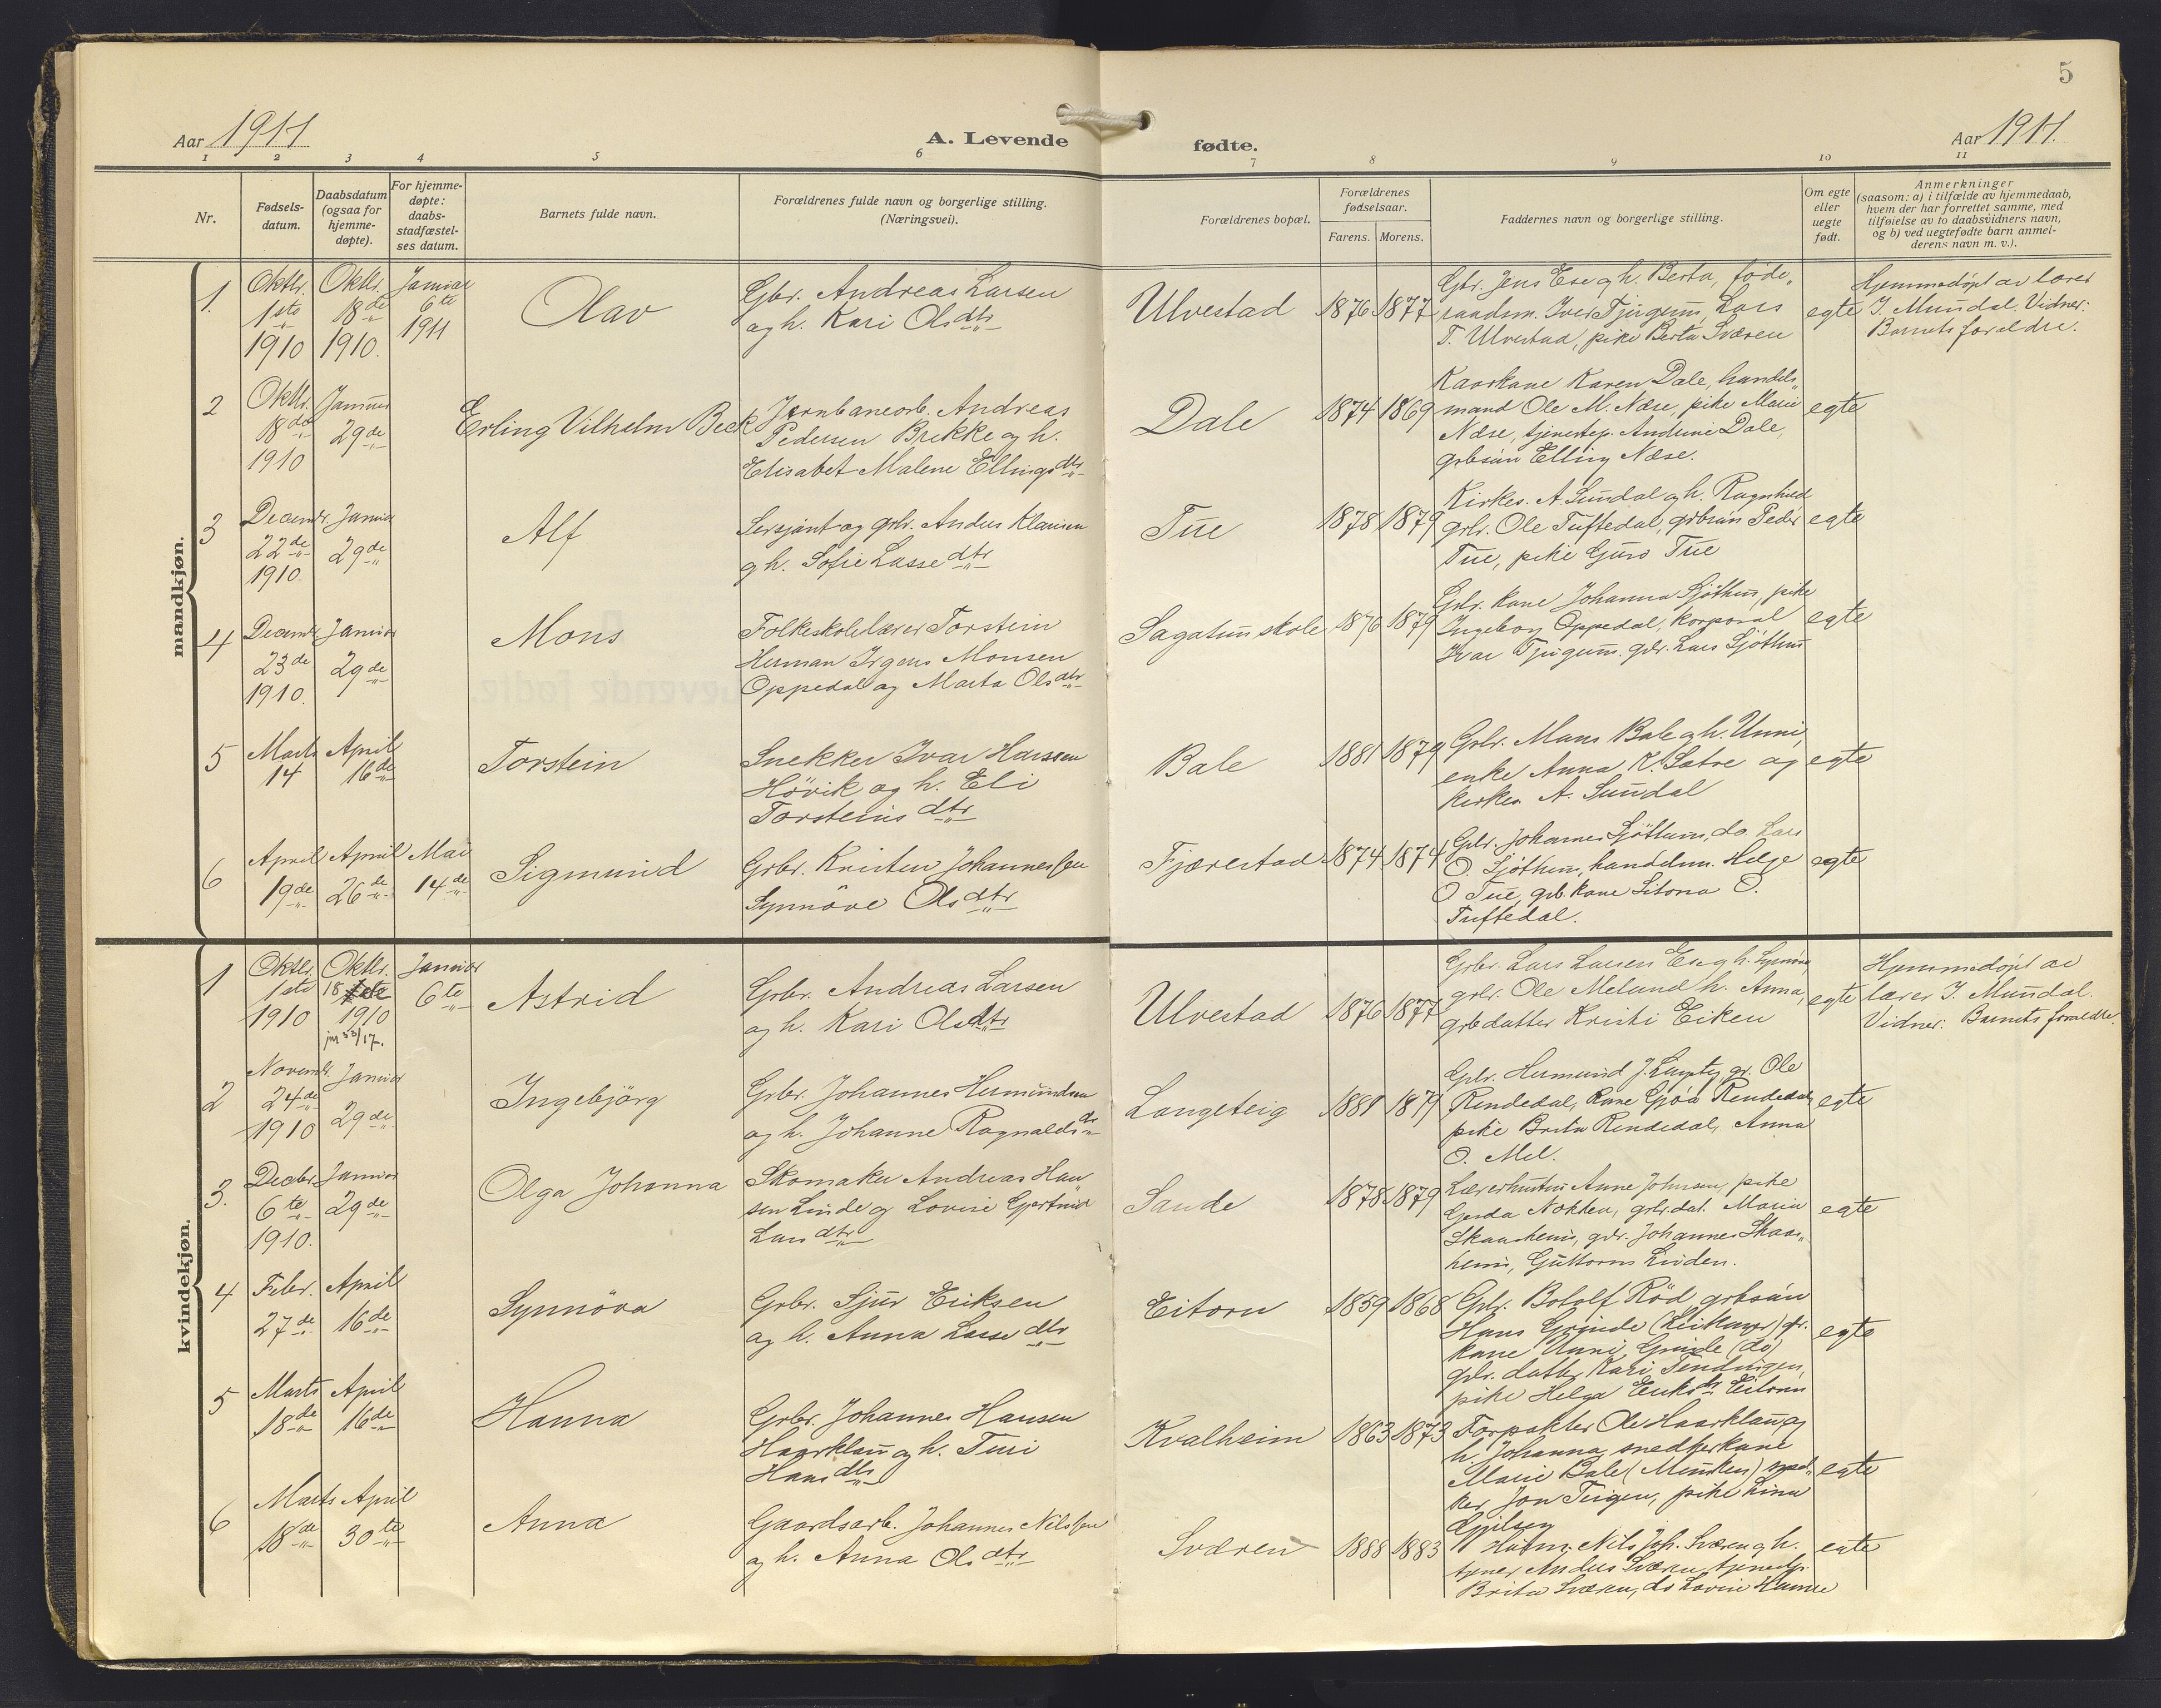 5
Aar 1911
A. Levende
fødte.
Aar 1911.
1 2 3 4 5 6 7 8 9 10 11
Nr.
Fødsels-
datum.
Daabsdatum
(ogsaa for
hjemme-
døpte).
For hjemme-
døpte:
daabs-
stadfæstel-
ses datum.
Barnets fulde navn.
Forældrenes fulde navn og borgerlige stilling.
(Næringsvei).
Forældrenes bopæl.
Forældrenes
fødselsaar.
Farens. Morens.
Faddernes navn og borgerlige stilling.
Om egte
eller
uegte
født.
Anmerkninger
(saasom: a) i tilfælde av hjemmedaab,
hvem der har forrettet samme, med
tilføielse av to daabsvidners navn,
og b) ved uegtefødte barn anmel-
derens navn m. v.).
mandkjøn.
1.
Oktbr.
1ste
1910
Oktbr.
18de
1910.
Januar
6te
1911
Olav
Gbr. Andreas Larsen
og h. Kari Olsdtr
Ulvestad
1876 1877
Gbr. Jens Ese og h. Berta, føde„
raadsm. Iver Tjugum, Lars
T. Ulvestad, pike Berta Sværen
egte
Hjemmedøpt av lærer
J. Mundal. Vidner:
Barnets foreldre.
2
Oktbr.
18de
1910
Januar
29de
Erling Vilhelm Beck
Jernbanearb. Andreas
Pedersen Brekke og h.
Elisabet Malene Ellingsdtr
Dale
1874 1869
Kaarkone Karen Dale, handels„
mand Ole M. Næse, pike Marie
Næse, tjenestep. Andrine Dale,
grbsøn Elling Næse.
egte
3
Decembr.
22de
1910
Januar
29de
Alf
Sersjant og grbr. Anders Klausen
og h. Sofie Lassedtr
Tue
1878 1879
Kirkes. A Sundal og h. Ragnhild
grbr. Ole Tuftedal, grbsøn Peder
Tue, pike Guro Tue
egte
4
Decembr
23de
1910.
Januar
29de
Mons
Folkeskolelærer Torstein
Herman Irgens Monsen
Oppedal og Marta Olsdtr
Sagatun skole
1876 1879
Grbr. kone Johanna Sjøthun, pike
Ingeborg Oppedal, korporal
Ivar Tjugum. gbr. Lars Sjøthun
egte
5
Marts
14
April
16de
Torstein
Snekker Ivar Hanssen
Hövik og h. Eli
Torsteinsdtr
Bale
1881 1879
Grbr. Mons Bale og h. Unni,
enke Anna K. Sætre og
kirkes. A. Sundal
egte
6
April
19de
April
26de
Mai
14de
Sigmund
Grbr. Kristen Johannessen
Synnöve Olsdtr
Fjærestad
1874 1874
Grbr. Johannes Sjøthun, do. Lars
O. Sjøthun, handelsm. Helge
O Tue, grb. kone Sitona O.
Tuftedal.
egte
kvindekjøn.
1
Oktbr.
1ste
1910
Oktbr.
18
1910
jnr 33/17.
Januar
6te
Astrid
Grbr. Andreas Larsen
og h. Kari Olsdtr
Ulvestad
1876 1877
Grbr. Lars Larsen Ese og h. Synnöva
grbr. Ole Melund h. Anna,
grbdatter Kristi Eiken
egte
Hjemmedöpt av
lærer J. Mundal.
Vidner: Barnets foreldre.
2
Novembr.
24de
1910
Januar
29de
Ingebjörg
Grbr. Johannes Hermundsen
og h. Johanne Ragnaldsdtr
Langeteig
1881 1879
Grbr. Hermund J. Langteig, gr. Ole
Rendedal, kone Gjøa Rendedal,
pike Brita Rendedal, Anna
O. Mel.
egte
3.
Decbr.
6te
1910.
Januar
29de
Olga Johanna
Skomaker Andreas Han„
sen Linde og Lovise Gjertrud
Larsdtr
Sande
1878 1879
Lærerhustru Anne Johnsen, pike
Gerda Nokken, grbr.dat. Marie
Skaasheim, gbr. Johannes Skaas„
heim, Guttorm Linden.
egte
4
Febr.
27de
April
16de
Synnöva
Grbr. Sjur Eriksen
og h. Anna Lassedtr
Eitorn
1859 1868
Grbr. Botolf Röd grbsön
Hans Grinde (Leikanger) gr.
kone Unni Grinde (do)
grbr. datter Kari Tendingen,
pike Helga Eriksdtr Eitorn
egte
5
Marts
18de
April
16de
Hanna
Grbr. Johannes Hansen
Haarklau og h. Turi
Hansdtr
Kvalheim
1863 1873
Forpakter Ole Haarklau og
h. Johanna, snedkerkone
Marie Bale (Munken) sned„
ker Jon Teigen, pike Lina
egte
6
Marts
18de
April
30te
Anna
Gaardsarb. Johannes Nilssen
og h. Anna Olsdtr
Sværen
1888 1883
Husm. Nils Joh. Sværen og h.
tjener Anders Sværen, tjenestp.
Brita Sværen, do Lovise Hamre
egte